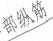 部纵筋